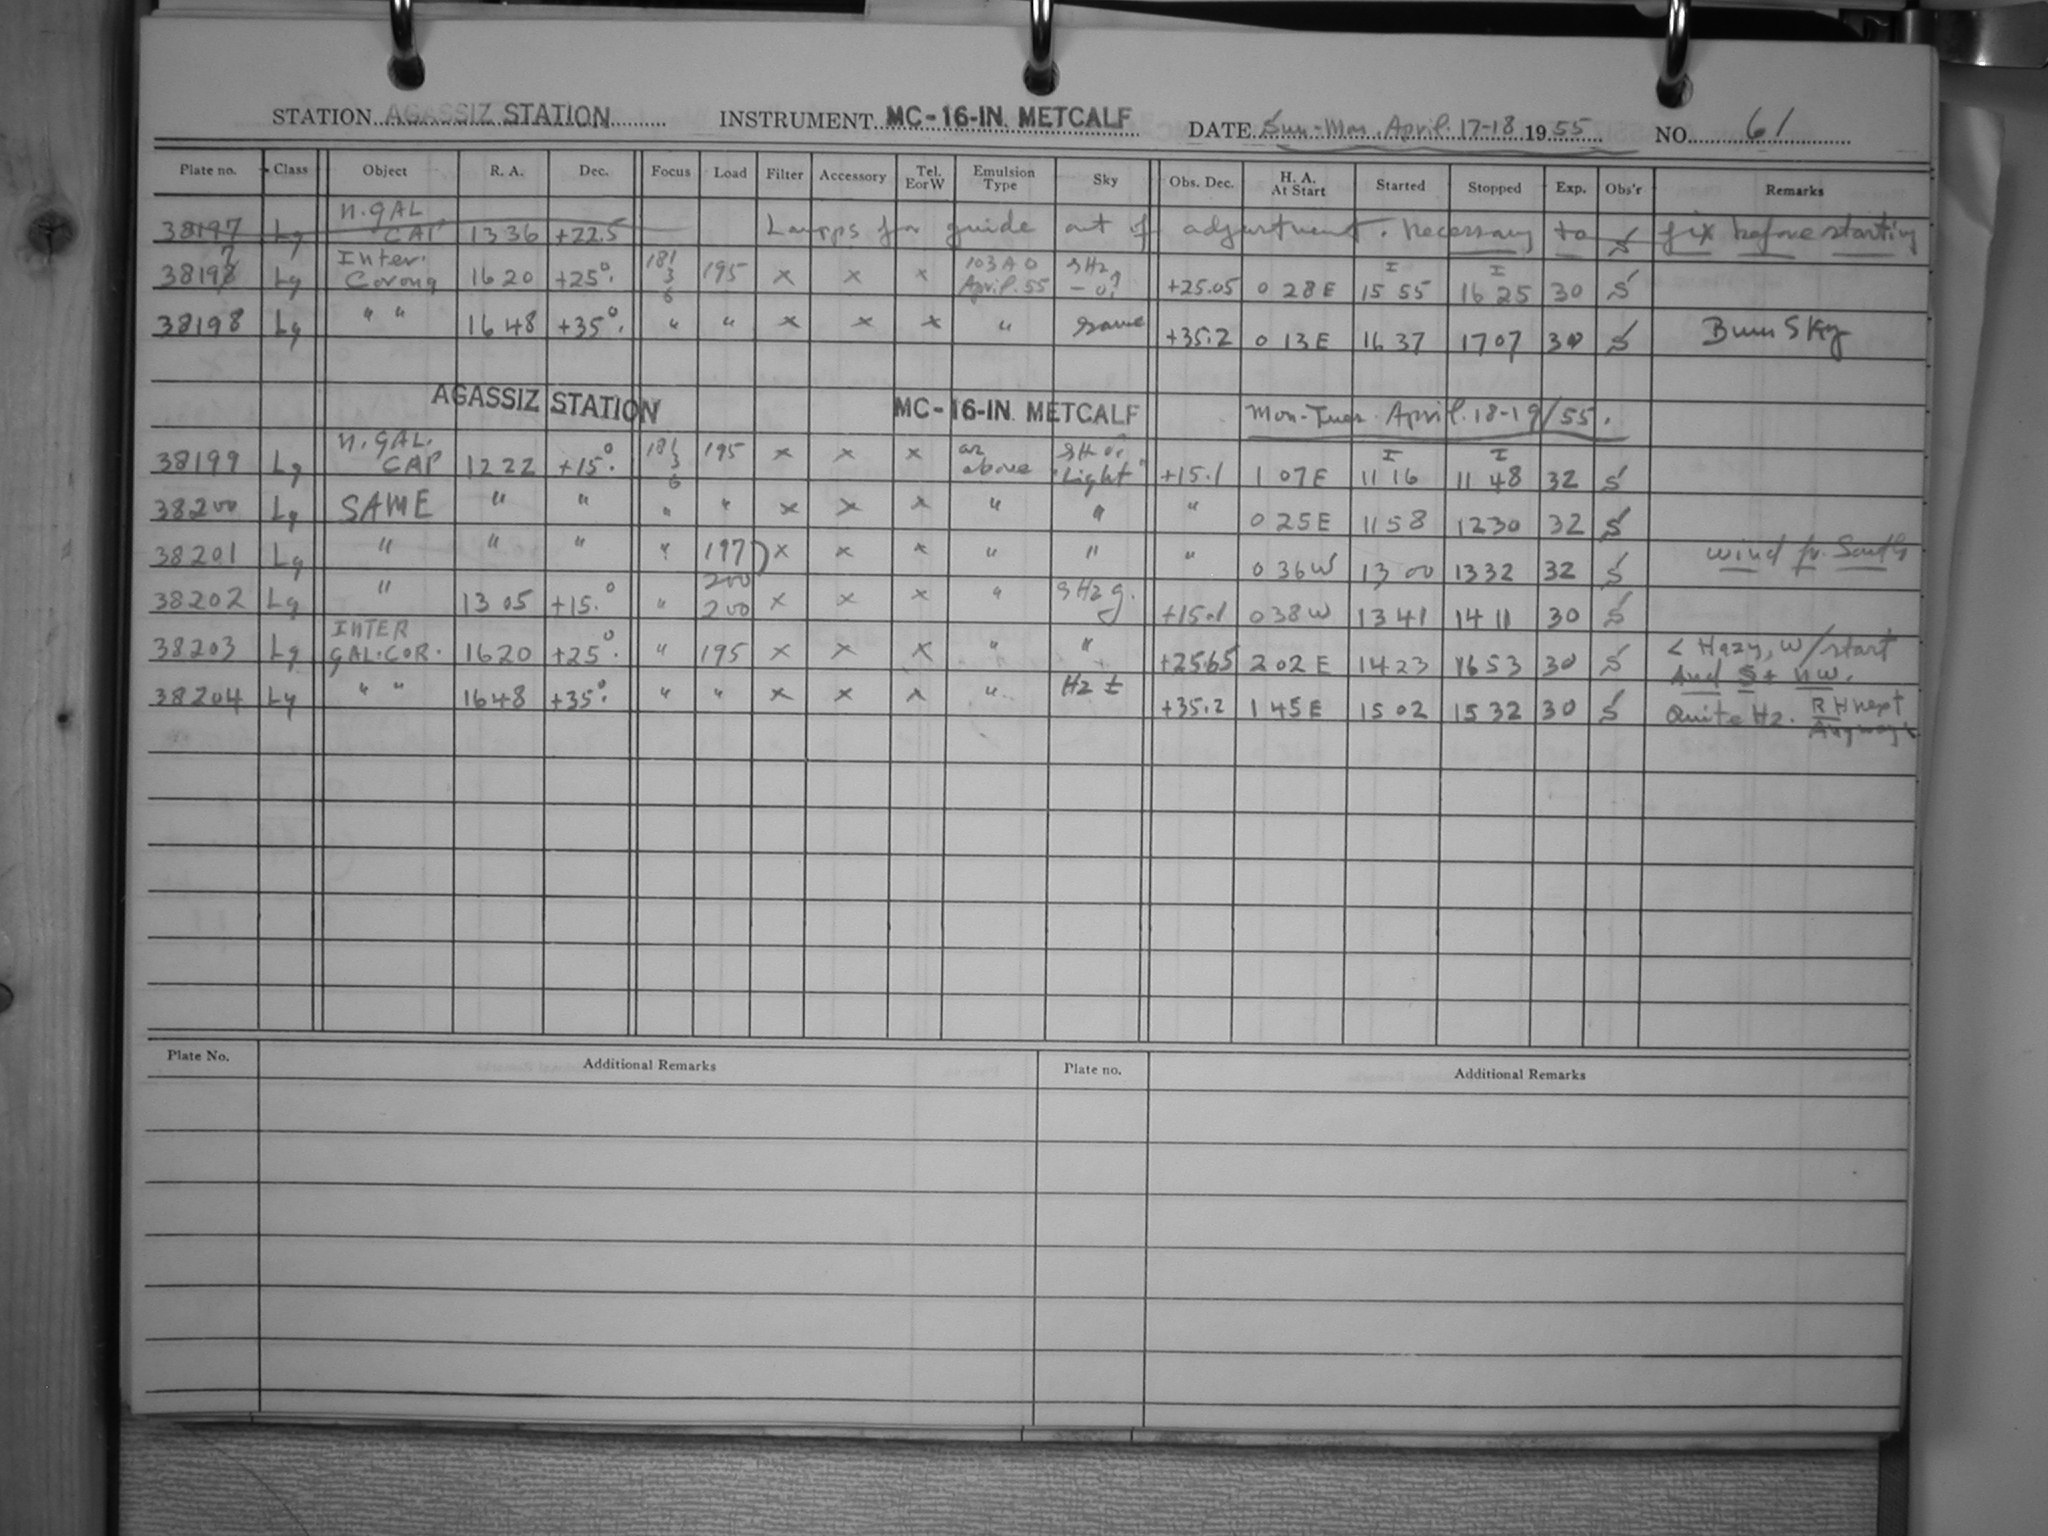 STATION AGASSIZ STATION INSTRUMENT MC-16-IN. METCALF DATE Sun-Mon. April 17-18 1955 NO. 61
Plate no. Class Object R. A. Dec. Focus Load Filter Accessory Tel. E or W Emulsion Type Sky Obs. Dec. H. A. At Start Started Stopped Exp. Obs'r Remarks
38197 Lg N. GAL CAP 13 36 +22.5 Lamps for guide out of adjustment. Necessary to fix before starting
38197 Lg Inter. Corona 16 20 +25°. 181 3 6 195 x x x 103 A O April. 55 +25.05 0 28 E 15 55 16 25 30 S
38198 Lg " " 16 48 +35°. " " x x x " Same +35.2 0 13 E 16 37 17 07 30 S Bum Sky
AGASSIZ STATION MC-16-IN. METCALF Mon-Tues. April. 18-19/55.
38199 Lg N. GAL. CAP 12 22 +15°. 181 3 6 195 x x x as above "Light" +15.1 1 07 E 11 16 11 48 32 S
38200 Lg SAME " " " " x x x " " " 0 25 E 11 58 12 30 32 S
38201 Lg " " " " 197) 200 x x x " " " 0 36 W 13 00 13 32 32 S wind fr. South
38202 Lg " 13 05 +15.° " 200 x x x " SHz g. +15.1 0 38 W 13 41 14 11 30 S
38203 Lg INTER GAL. COR. 16 20 +25°. " 195 x x x " " +25.65 2 02 E 14 23 16 53 30 S < Hazy, W/start And S + NW.
38204 Lg " " 16 48 +35°. " " x x x " Hz ± +35.2 1 45 E 15 02 15 32 30 S Quite Hz. Anyway
Plate No. Additional Remarks Plate no. Additional Remarks